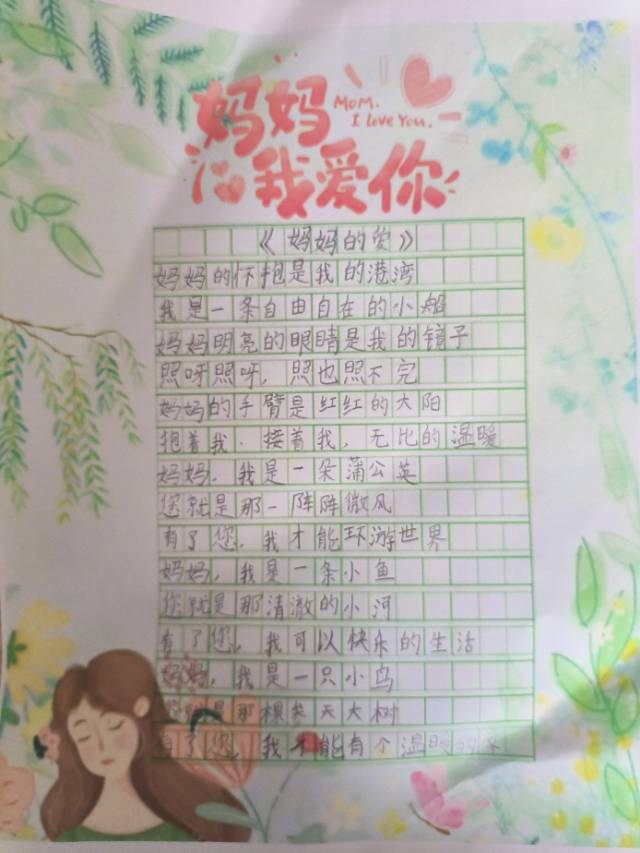 妈妈
MOM.
I Love You.
我爱你
《妈妈的爱》
妈妈的怀抱是我的港湾
我是一条自由自在的小船
妈妈明亮的眼睛是我的镜子
照呀照呀，照也照不完
妈妈的手臂是红红的大阳
抱着我．接着我．无比的温暖
妈妈．我是一朵蒲公英
您就是那一阵阵微风
有了您．我才能环游世界
妈妈，我是一条小鱼
您就是那清澈的小河
有了您，我可以快乐的生活
妈妈，我是一只小鸟
您就是那棵参天大树
有了您，我才能有个温暖的家